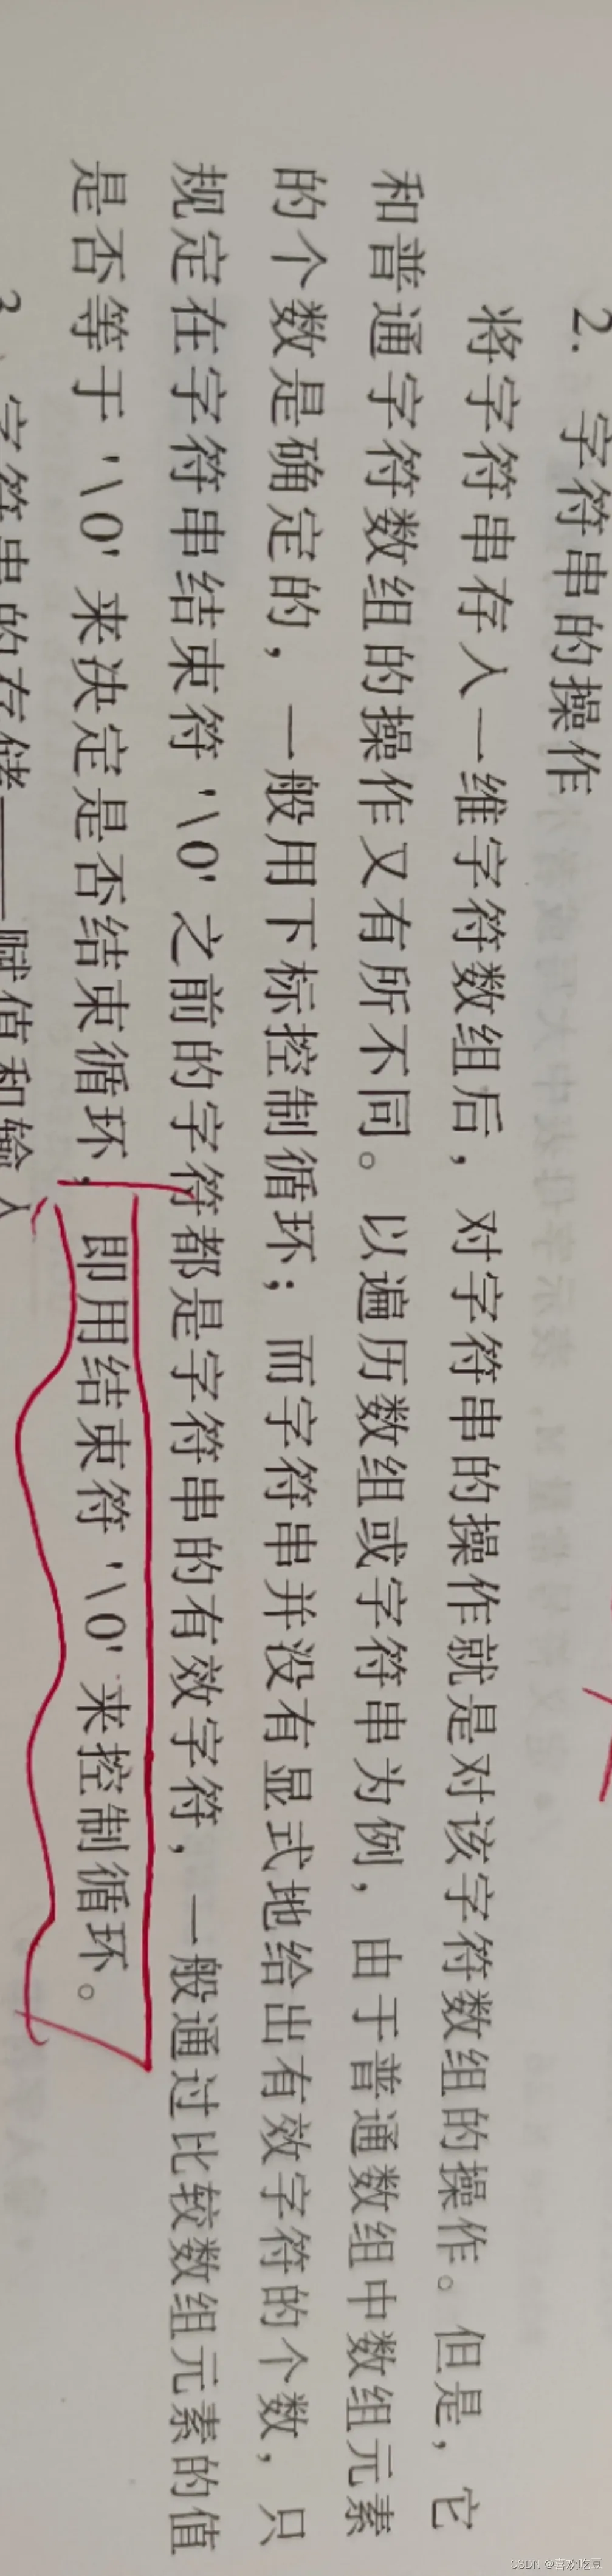 2. 字符串的操作
将字符串存入一维字符数组后，对字符串的操作就是对该字符数组的操作。但是，它
和普通字符数组的操作又有所不同。以遍历数组或字符串为例，由于普通数组中数组元素
的个数是确定的，一般用下标控制循环；而字符串并没有显式地给出有效字符的个数，只
规定在字符串结束符 '\0' 之前的字符都是字符串的有效字符，一般通过比较数组元素的值
是否等于 '\0' 来决定是否结束循环，即用结束符 '\0' 来控制循环。
3. 字符串的存储——赋值和输入
CSDN @喜欢吃豆